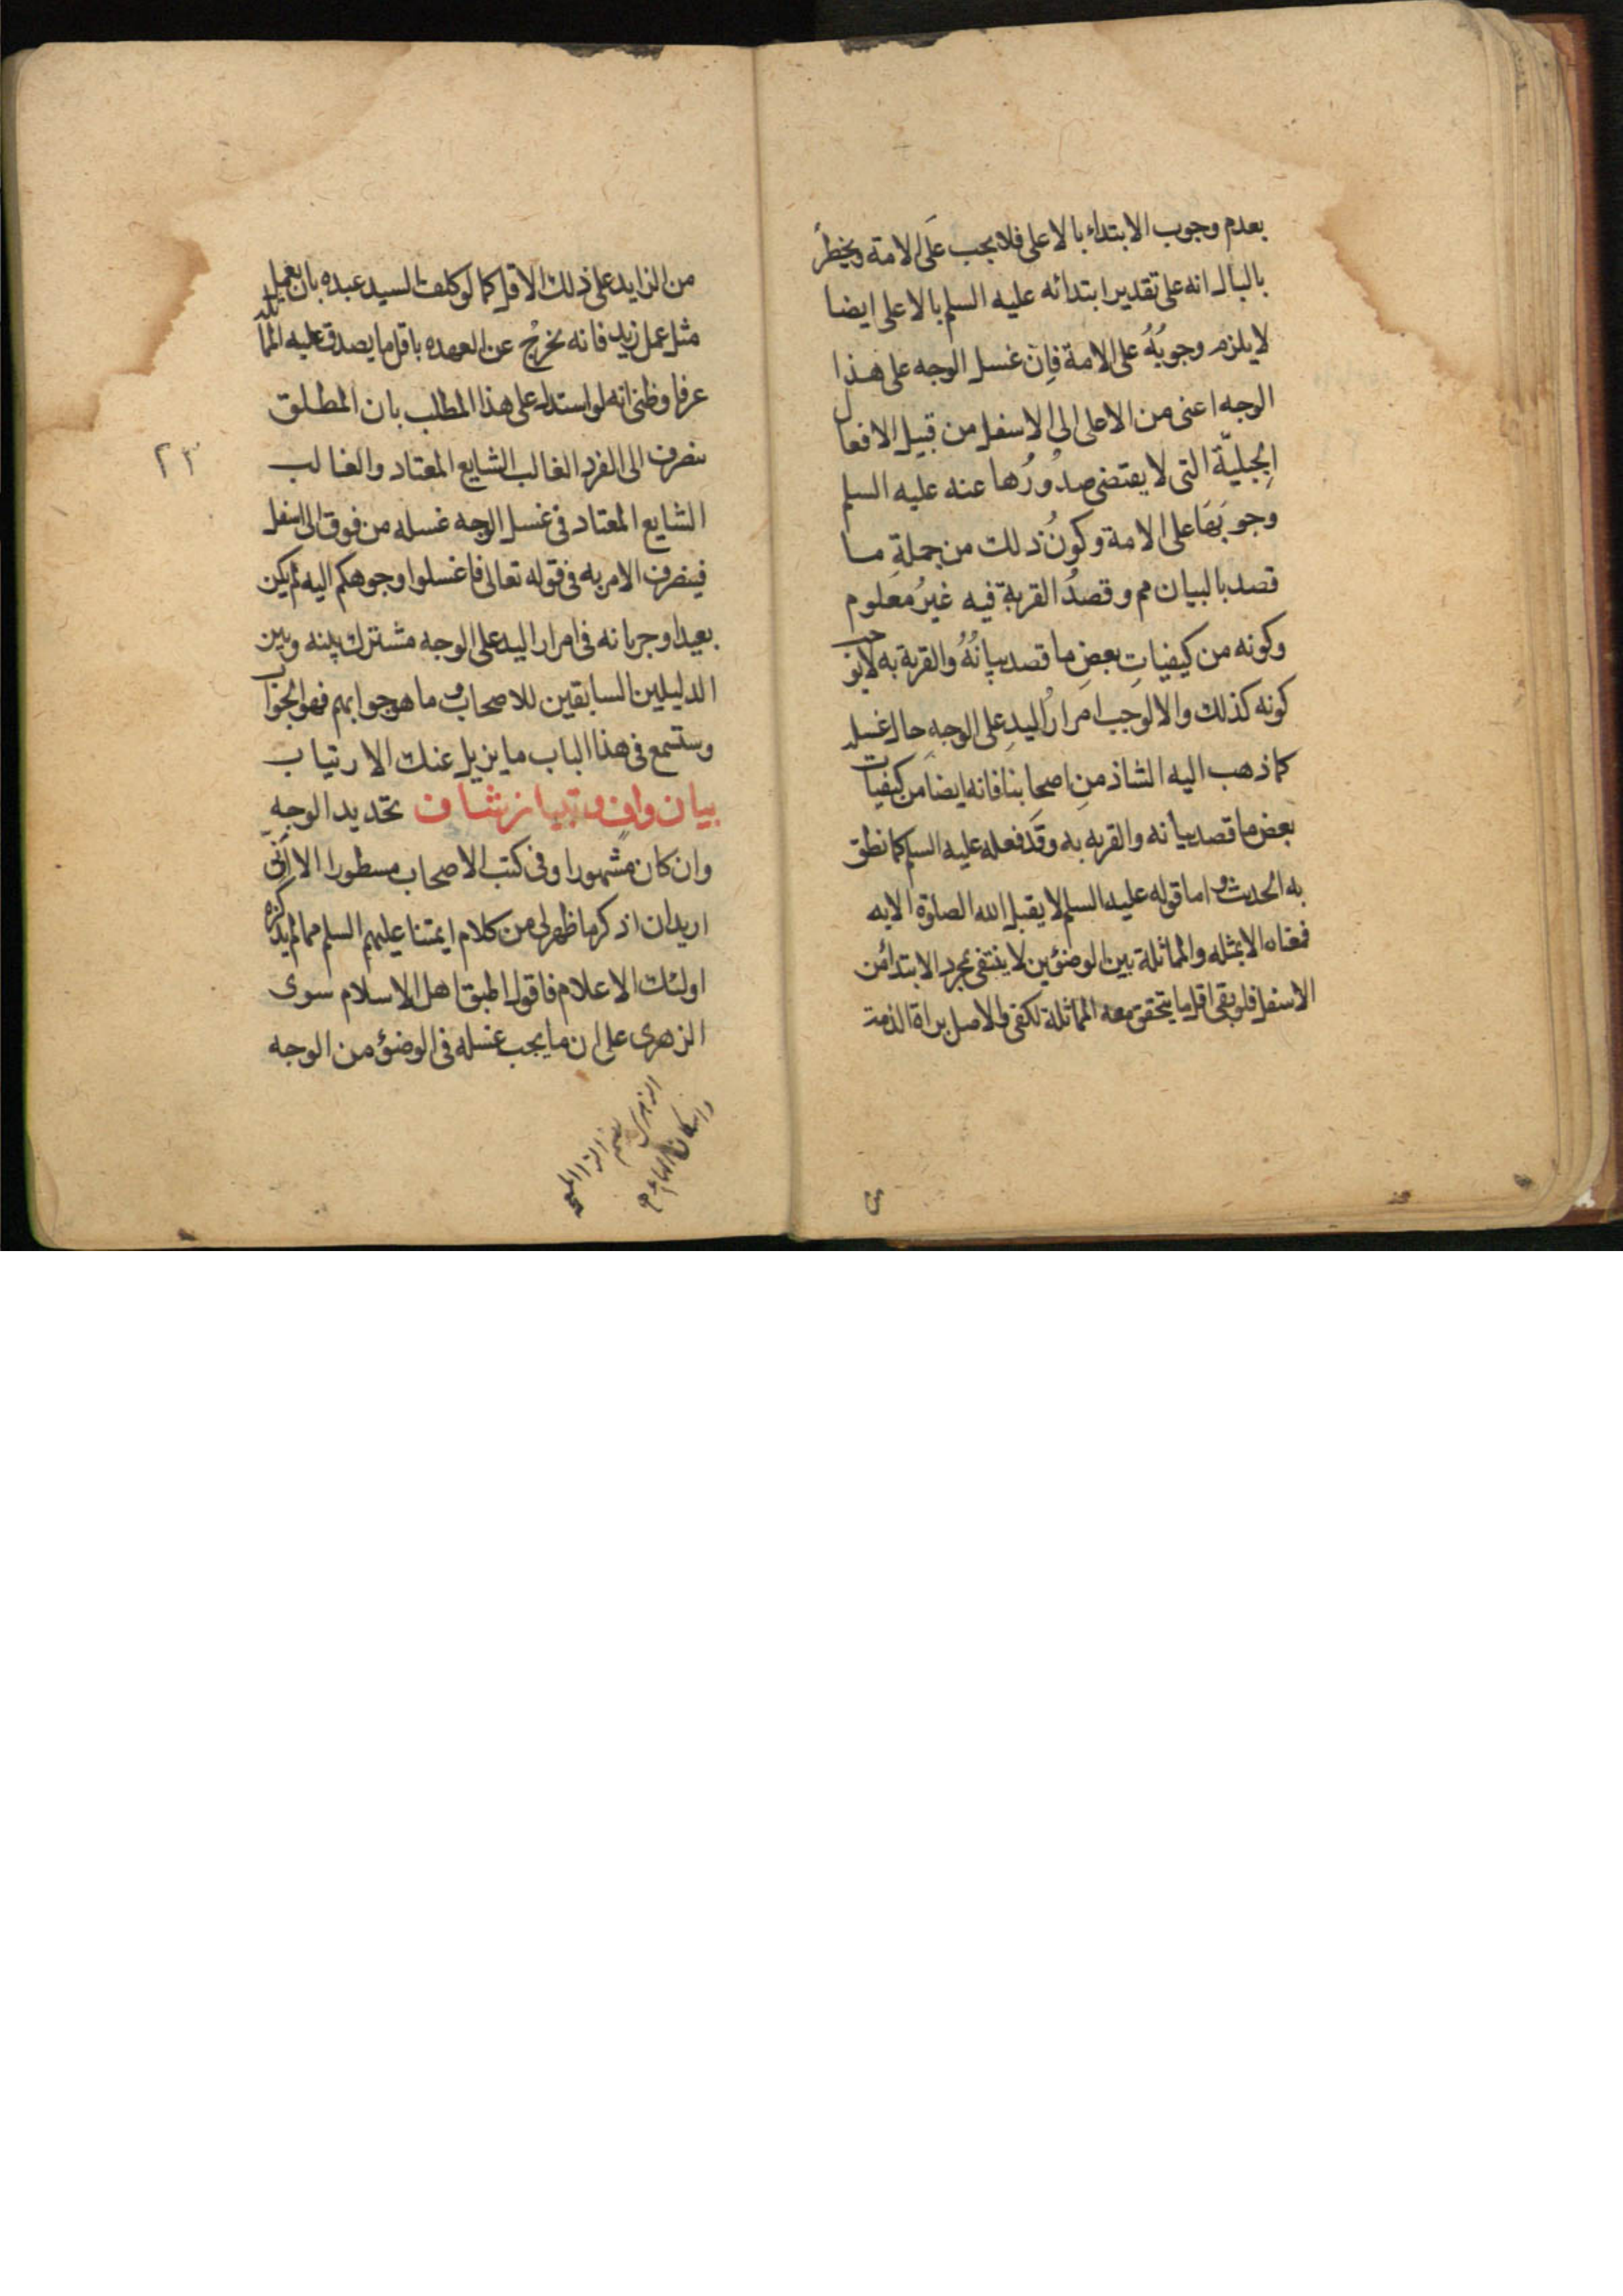 بعدم وجوب الابتداء بالاعلى فلا يجب على الامة ويخطر
بالبال انه على تقدير ابتدائه عليه السلم بالاعلى ايضا
لا يلزم وجوبُهُ على الامة فاِنّ غسل الوجه على هذا
الوجه اعنى من الاعلى الى الاسفل من قبيل الافعال
الجِبِليّة التى لا يقتضى صدُورُها عنه عليه السلم
وجوبَهَا على الامة وكونُ ذلك من جملةِ ما
قصد بالبيان مم وقصدُ القربة فيه غيرُ معلوم
وكونه من كيفياتِ بعضِ ما قصد بيانُهُ والقربة به لا يوجب
كونه كذلك والا لوجب امرارُ اليدِ على الوجهِ حال غسله
كما ذهب اليه الشاذ منِ اصحابنا فانه ايضا من كيفيات
بعض ما قصد بيانه والقربه به وقد فعله عليه السلم كما نطق
به الحديث واما قوله عليه السلم لا يقبل الله الصلوة الا به
فمعناه الا بمثله والمماثلة بين الوضوئين لا ينتفى بمجرد الابتداء من
الاسفل فلو بقى اقل ما يتحقق معه المماثلة لكفى والاصل براة الذمة
من الزايد على ذلك الاقل كما لو كلف السيد عبده بان يعمل
مثل عمل زيد فانه يخرجُ عن العهده باقل ما يصدق عليه المماثلة
عرفا وظنى انه لو استدل على هذا المطلب بان المطلق
ينصرف الى الفرد الغالب الشايع المعتاد والغالب
٢٣
الشايع المعتاد فى غسل الوجه غسله من فوق الى اسفل
فينصرف الامر به فى قوله تعالى فاغسلوا وجوهكم اليه لم يكن
بعيدا وجريانه فى امرار اليد على الوجه مشترك بينه وبين
الدليلين السابقين للاصحاب وما هو جوابهم فهو الجواب
وستسمع فى هذا الباب ما يزيل عنك الارتياب
بيان وافٍ وتبيان شاف تحديد الوجهِ
وان كان مشهورا وفى كتب الاصحاب مسطورا الا اَنّى
اريد ان اذكر ما ظهر لى من كلام ايمتنا عليهم السلم مما لم يذكره
اولئك الاعلام فاقول اطبق اهل الاسلام سوى
الزهرى على ان ما يجب غسله فى الوضوء من الوجه
الزهرى بضم الزا المعجمه
واسكان الهاء